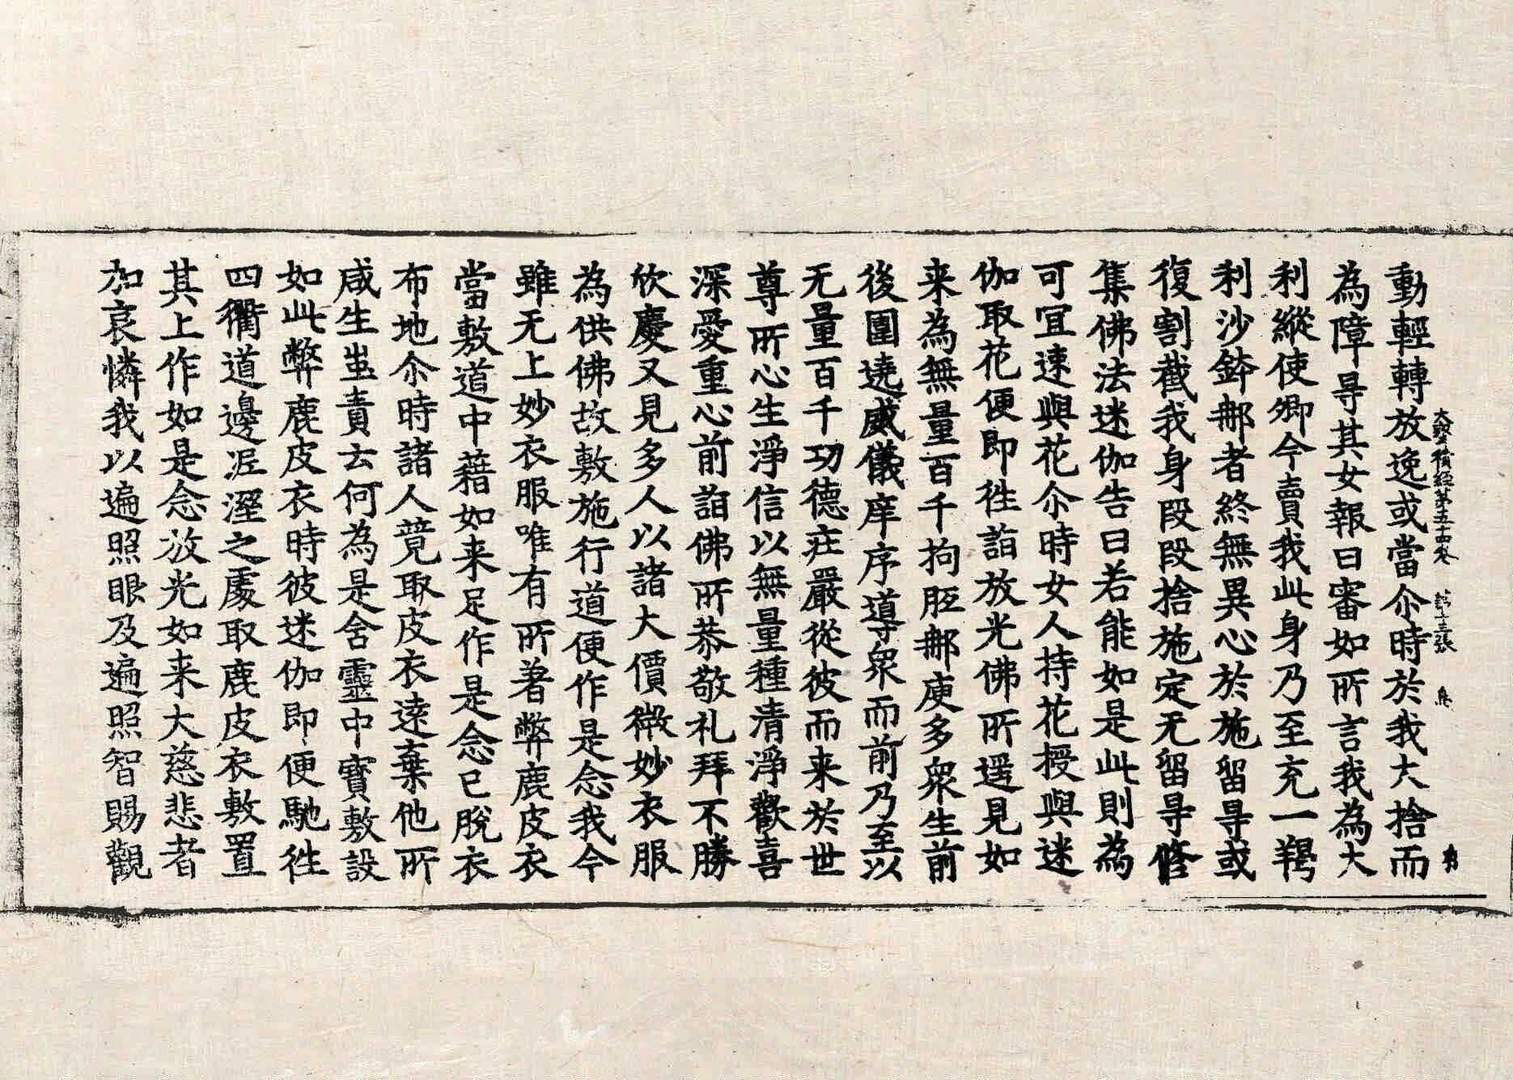 大寶積經第五十四卷 第十三張 鳥
動輕轉放逸或當尒時於我大捨而
為障㝵其女報曰審如所言我為大
利縱使卿今賣我此身乃至充一羯
利沙鉢那者終無異心於施留㝵或
復割截我身段段捨施定无留㝵修
集佛法迷伽告曰若能如是此則為
可宜速與花尒時女人持花授與迷
伽取花便即往詣放光佛所遥見如
来為無量百千拘胝那庾多衆生前
後圍遶威儀庠序導衆而前乃至以
无量百千功德莊嚴從彼而来於世
尊所心生淨信以無量種清淨歡喜
深愛重心前詣佛所恭敬礼拜不勝
欣慶又見多人以諸大價微妙衣服
為供佛故敷施行道便作是念我今
雖无上妙衣服唯有所著弊鹿皮衣
當敷道中藉如来足作是念已脫衣
布地尒時諸人竟取皮衣遠棄他所
咸生𧉮責云何為是舍靈中寶敷設
如此弊鹿皮衣時彼迷伽即便馳往
四衢道邊泥溼之處取鹿皮衣敷置
其上作如是念放光如来大慈悲者
加哀憐我以遍照眼及遍照智賜觀